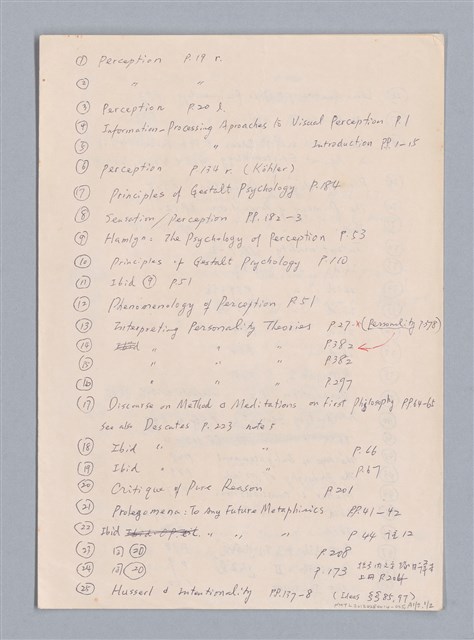 ① Perception P.19 r.
② " "
③ Perception P.20 l.
④ Information-Processing Aproaches to Visual Perception P.1
⑤ " Introduction PP.1-15
⑥ Perception P.134 r. (Köhler)
⑦ Principles of Gestalt Psychology P.184
⑧ Sensation/Perception PP.182-3
⑨ Hamlyn: The Psychology of Perception P.53
⑩ Principles of Gestalt Psychology P.110
⑪ Ibid ⑨ P.51
⑫ Phenomenology of Perception P.51
⑬ Interpreting Personality Theories P.27 (Personality P.578)
⑭ " " " P.382
⑮ " " " P.382
⑯ " " " P.297
⑰ Discourse on Method & Meditations on First Philosophy PP.64-65
see also Descates P.223 note 5
⑱ Ibid " " P.66
⑲ Ibid " P.67
⑳ Critique of Pure Reason P.201
㉑ Prolegomena: To Any Future Metaphysics PP.41-42
㉒ Ibid " " " P.44
㉓ 同 ⑳ P.208
㉔ 同 ⑳ P.173
㉕ Husserl & Intentionality PP.137-8 (Ideas §§85, 97)